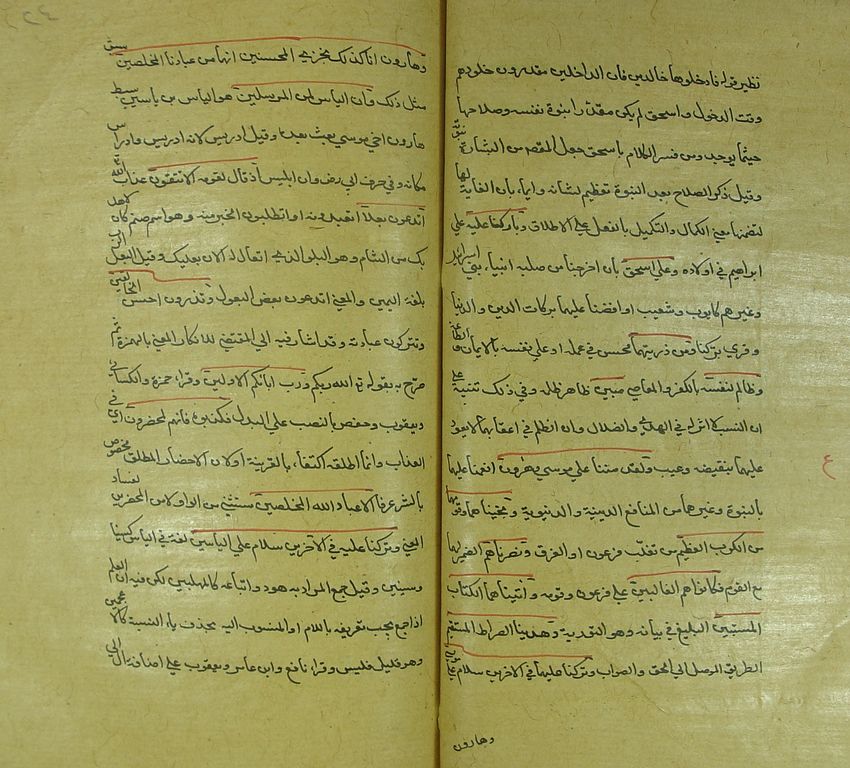 نظير قوله فادخلوها خالدين فان الداخلين مقدرون خلودهم
وقت الدخول واسحق لم يكن مقدرا نبوة نفسه وصلاحها
حيثما يوجد ومن فسر الغلام باسحق جعل المقصود من البشارة نبوته
وقيل ذكر الصلاح بعد النبوة تعظيم لشانه وايماء بان الغاية لها
لتضمنها معنى الكمال والتكميل بالفعل على الاطلاق وباركنا عليه على
ابراهيم في اولاده وعلى اسحق بان اخرجنا من صلبه انبياء بني اسرائيل
وغيرهم كايوب وشعيب او افضنا عليهما بركات الدين والدنيا
وقرى بركنا ومن ذريتهما محسن في عمله او على نفسه بالايمان والطاعة
وظالم لنفسه بالكفر والمعاصي مبين ظاهر ظلمه وفي ذلك تنبيه على
ان النسب لا اثر له في الهدى والضلال وان الظلم في اعقابهما لا يعود
عليهما بنقيصة وعيب ولقد مننا على موسى وهرون انعمنا عليهما
بالنبوة وغيرها من المنافع الدينية والدنيوية ونجيناهما وقومهما
من الكرب العظيم من تغلب فرعون او الغرق ونصرناهم الضمير لهما
مع القوم فكانوا هم الغالبين على فرعون وقومه وآتيناهما الكتاب
المستبين البليغ في بيانه وهو التورية وهديناهما الصراط المستقيم
الطريق الموصل الى الحق والصواب وتركنا عليهما في الاخرين سلام على موسى
وهارون
وهارون انا كذلك نجزي المحسنين انهما من عبادنا المخلصين سبق
مثل ذلك وان الياس لمن المرسلين هو الياس بن ياسين سبط
هارون اخي موسى بعث بعده وقيل ادريس لانه ادريس وادراس
مكانه وفي حرف ابي رض وان ابليس اذ قال لقومه الا تتقون عذاب الله
اتدعون بعلا اتعبدونه او اتطلبون الخير منه وهو اسم صنم كان لاهل
بك من الشام وهو البلد الذي يقال له الان بعلبك وقيل البعل الرب
بلغة اليمن والمعنى اتدعون بعض البعول وتذرون احسن الخالقين
وتتركون عبادته وقد اشار فيه الى المقتضي للانكار المعني بالهمزة ثم
صرح به بقوله الله ربكم ورب ابائكم الاولين وقراء حمزة والكسائي
ويعقوب وحفص بالنصب على البدل فكذبوه فانهم لمحضرون اي في
العذاب وانما اطلقه اكتفاء بالقرينة او لان الاحضار المطلق مخصوص
بالشر عرفا الا عباد الله المخلصين مستثنى من الواو لا من المحضرين لفساد
المعنى وتركنا عليه في الاخرين سلام على الياسين لغة في الياس كسينا
وسينين وقيل جمع له المراد به هو واتباعه كالمهلبين لكن فيه ان العلم
اذا جمع يجب تعريفه باللام او للمنسوب اليه بحذف ياء النسبة كالاعجمين
وهو قليل ملبس وقراء نافع وابن عامر ويعقوب على اضافة ال الى